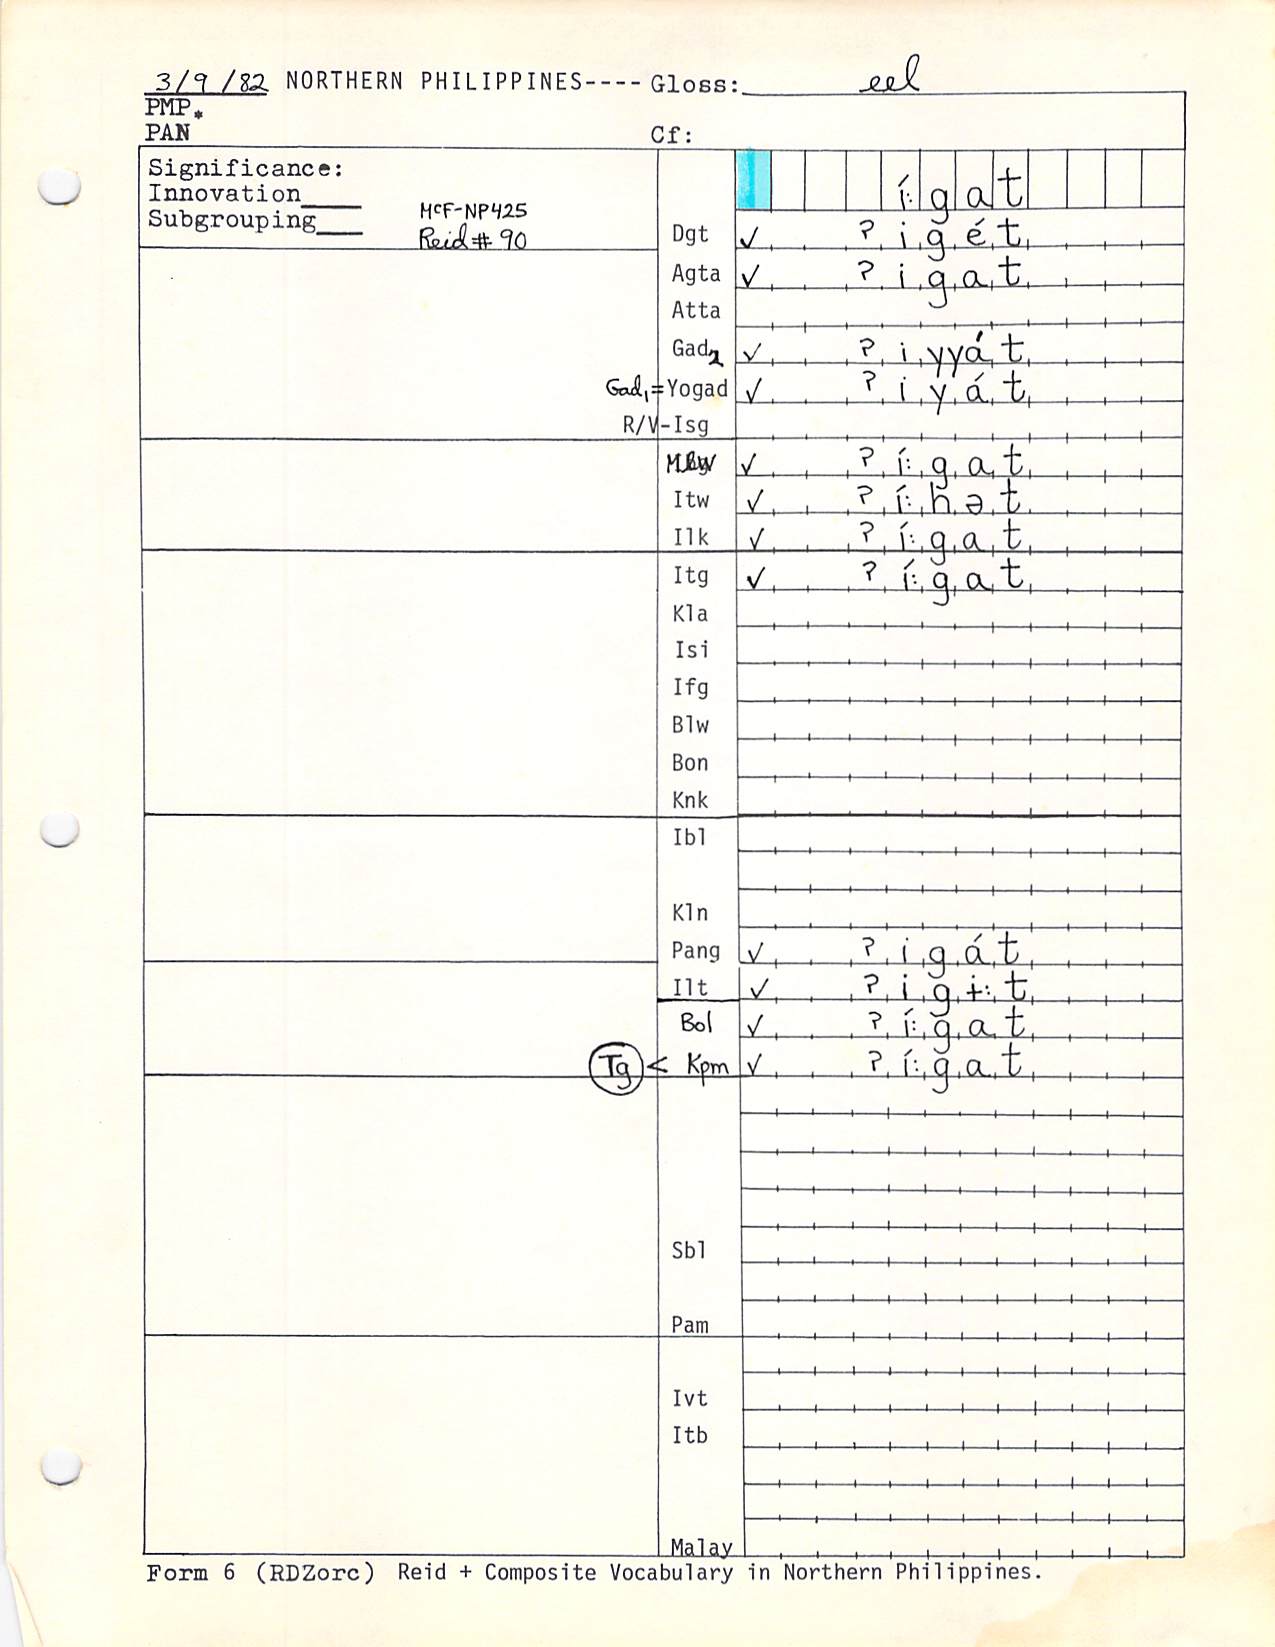 3/9/82 NORTHERN PHILIPPINES---- Gloss: eel
PMP *
PAN Cf:
Significance:
Innovation____
Subgrouping____
McF-NP425
Reid # 90
í:gat
Dgt ✓ ʔigét
Agta ✓ ʔigat
Atta
Gad2 ✓ ʔiyyát
Gad1 = Yogad ✓ ʔiyát
R/V-Isg
✓ ʔí:gat
Itw ✓ ʔí:hət
Ilk ✓ ʔí:gat
Itg ✓ ʔí:gat
Kla
Isi
Ifg
Blw
Bon
Knk
Ibl
Kln
Pang ✓ ʔigát
Ilt ✓ ʔigɨ:t
Bol ✓ ʔí:gat
Tg < Kpm ✓ ʔí:gat
Sbl
Pam
Ivt
Itb
Malay
Form 6 (RDZorc) Reid + Composite Vocabulary in Northern Philippines.